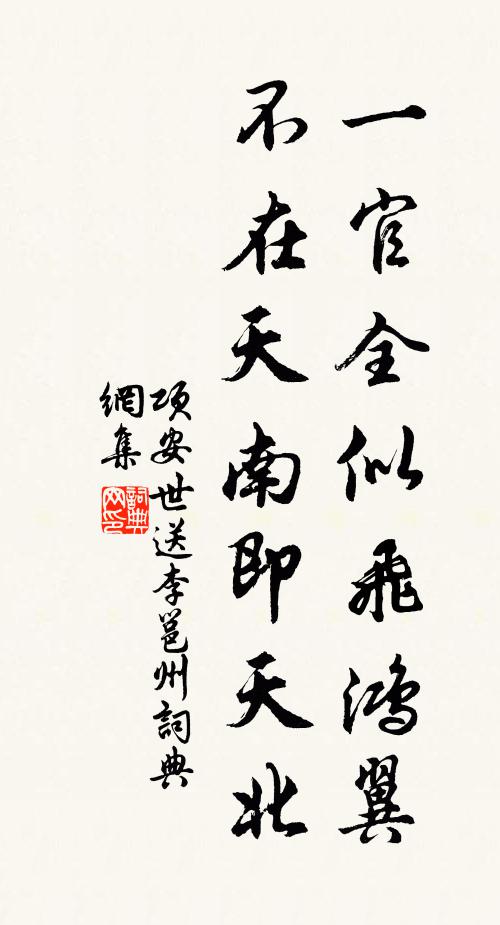 一官全似飛鴻翼
不在天南即天北
項安世送李邕州詞典
網集
詞典網印